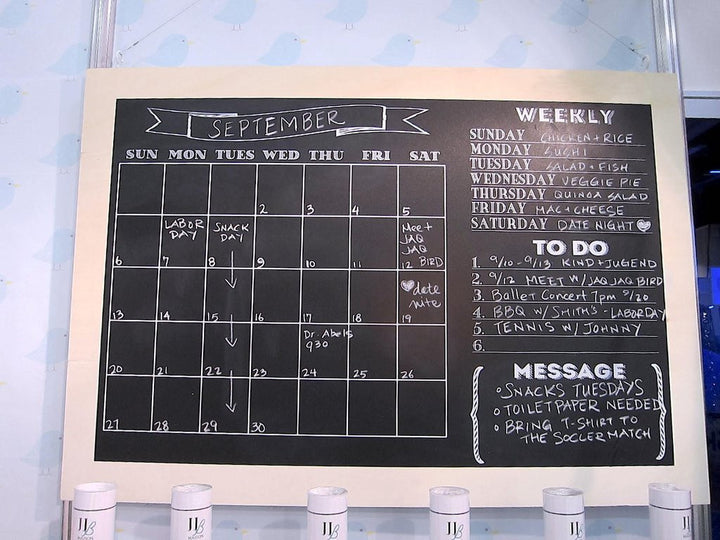 SEPTEMBER
SUN MON TUES WED THU FRI SAT
2 3 4 5
LABOR DAY
SNACK DAY
Meet JAQ JAQ BIRD
6 7 8 9 10 11 12
date nite
13 14 15 16 17 18 19
Dr. Abels 930
20 21 22 23 24 25 26
27 28 29 30
WEEKLY
SUNDAY CHICKEN + RICE
MONDAY SUSHI
TUESDAY SALAD + FISH
WEDNESDAY VEGGIE PIE
THURSDAY QUINOA SALAD
FRIDAY MAC + CHEESE
SATURDAY DATE NIGHT
TO DO
1. 9/10 - 9/13 KIND + JUGEND
2. 9/12 MEET W/ JAQ JAQ BIRD
3. Ballet Concert 7pm 9/20
4. BBQ W/ SMITH'S - LABORDAY
5. TENNIS W/ JOHNNY
6.
MESSAGE
SNACKS TUESDAYS
TOILET PAPER NEEDED
BRING T-SHIRT TO
THE SOCCER MATCH
JJB
JJB
JJB
JJB
JJB
JJB